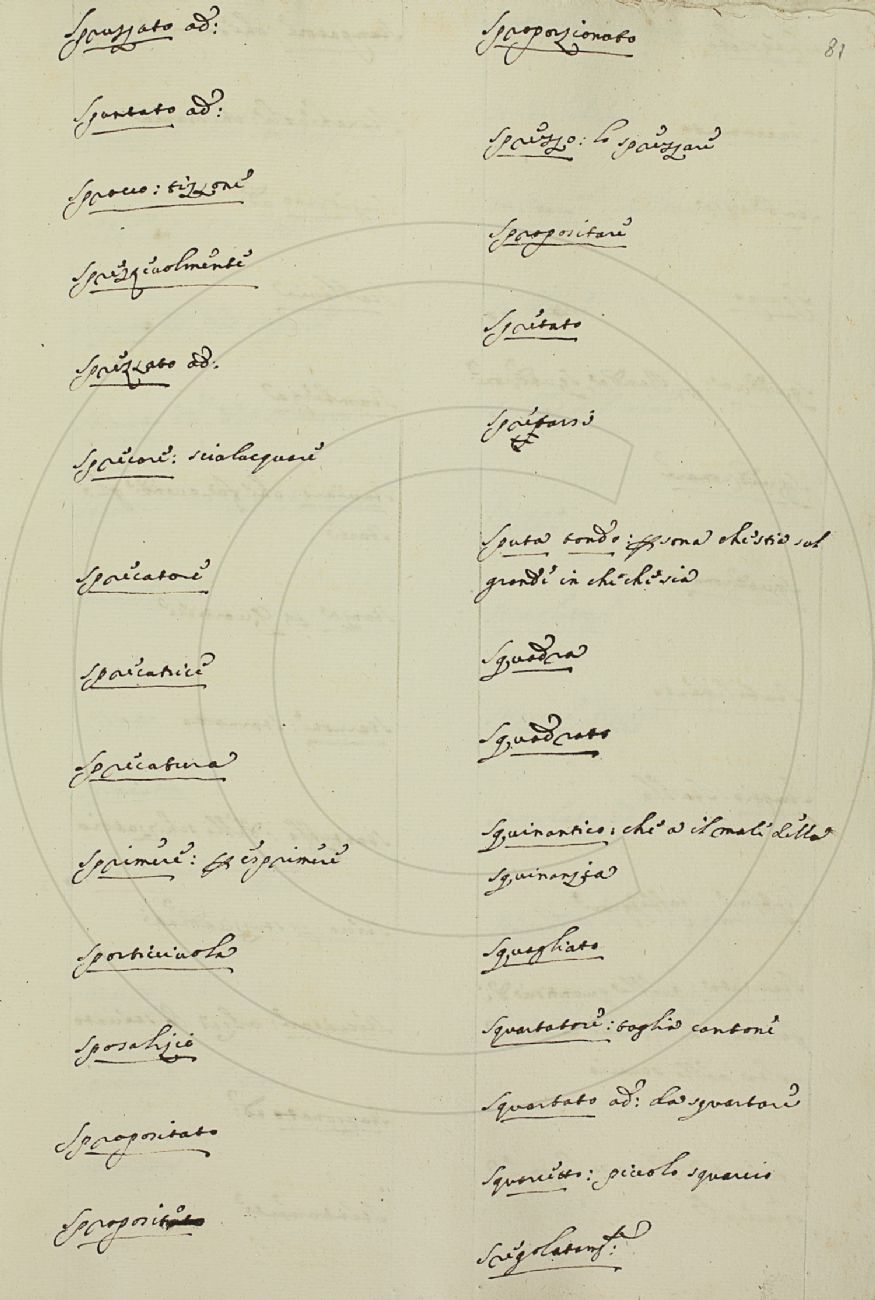 Spruzzato ad:
Spuntato ad:
Sprocco: tizzone
Sprezzevolmente
Sprezzato ad:
Sprecare: scialacquare
Sprecatore
Sprecatrice
Sprecatura
Sprimere: esprimere
Sporticciuola
Sposalizio
Spropositato
Sproposit
Sproporzionato
81
Sprezzo: lo sprezzare
Spropositare
Spretato
Spretarsi
Sputa tondo: sona che stia sul
grande in chi che sia
Squadra
Squadrato
Squinantico: che a il male della
squinanzia
Squagliato
Squartatore: taglia cantone
Squartato ad: da squartare
Squarcetto: piccolo squarcio
Sregolatam: